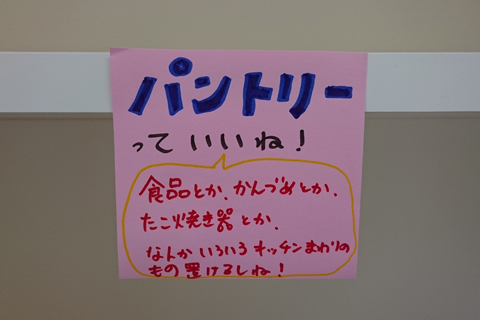 パントリー
っていいね!
食品とか、かんづめとか、
たこ焼き器とか、
なんかいろいろキッチンまわりの
もの置けるしね!